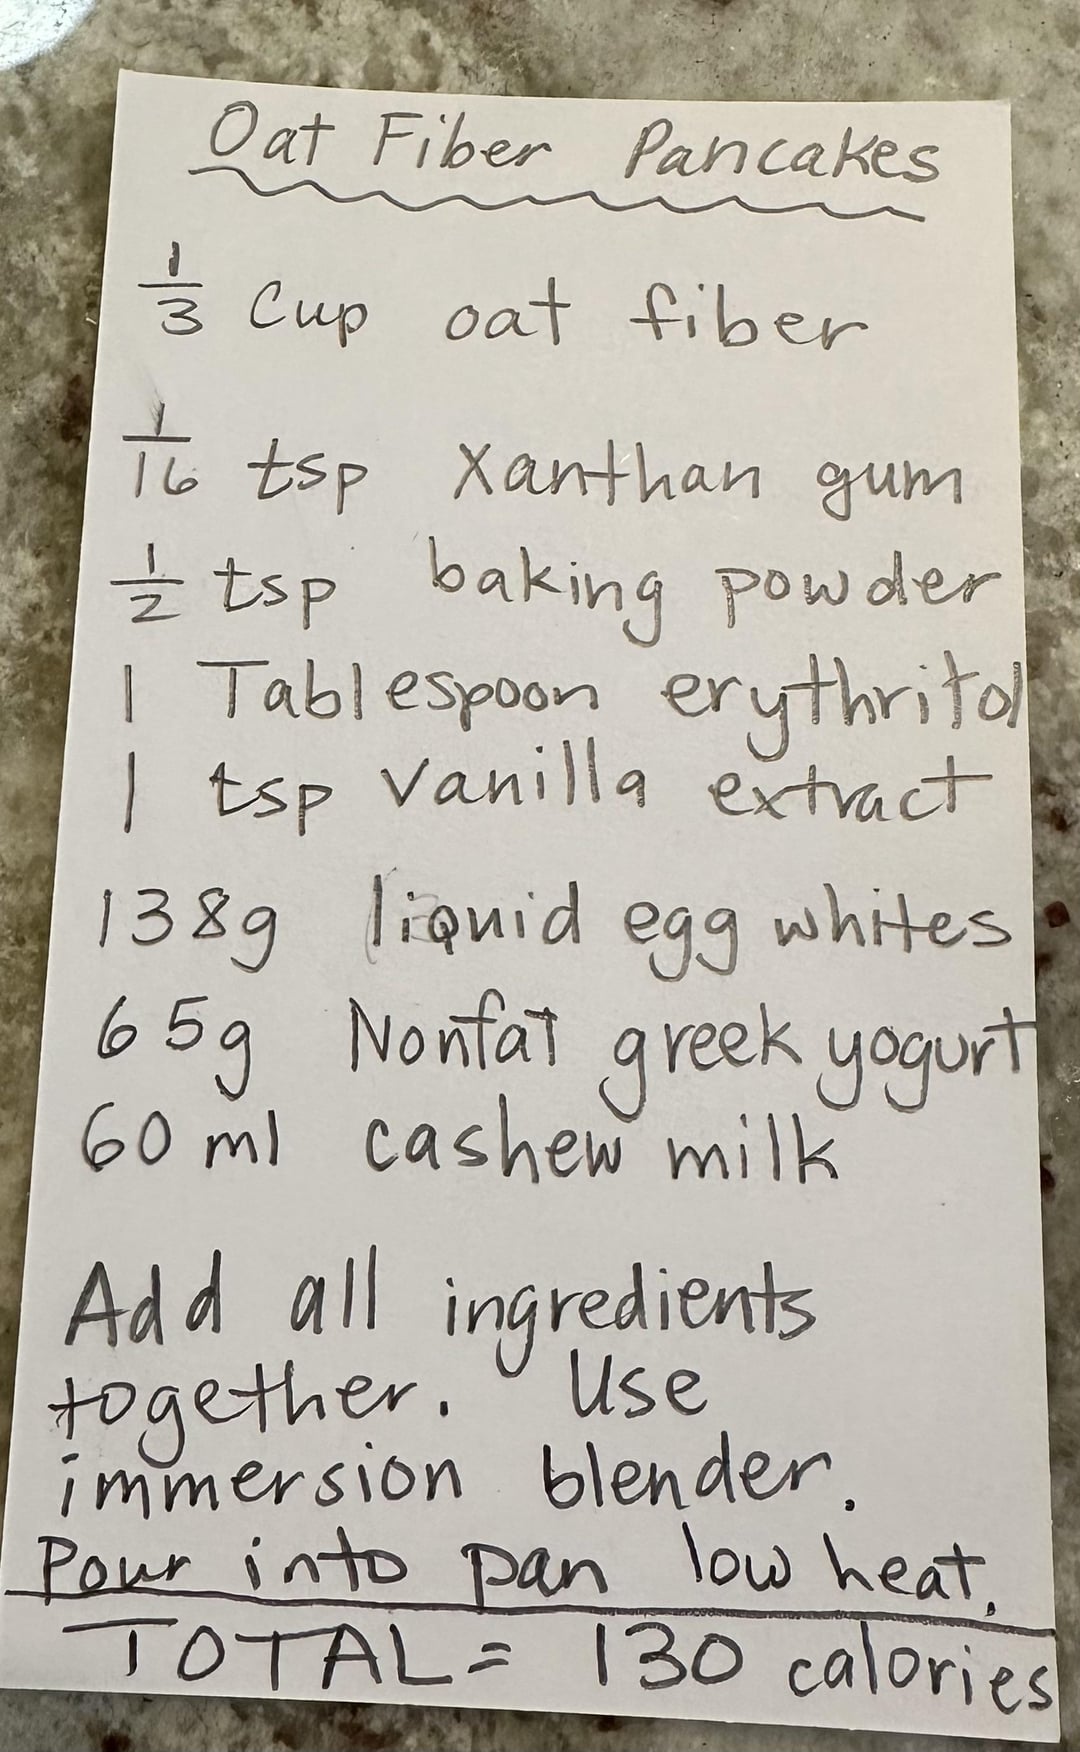 Oat Fiber Pancakes
1/3 Cup oat fiber
1/16 tsp Xanthan gum
1/2 tsp baking powder
1 Tablespoon erythritol
1 tsp vanilla extract
138g liquid egg whites
65g Nonfat greek yogurt
60 ml cashew milk
Add all ingredients
together. Use
immersion blender.
Pour into pan low heat.
TOTAL = 130 calories